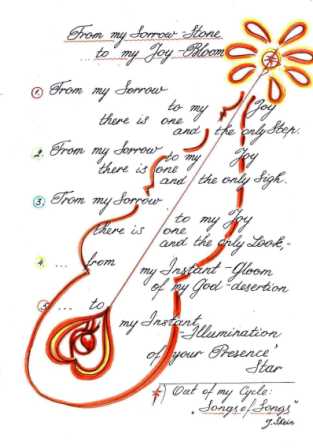 From my Sorrow-Stone
... to my Joy-Bloom
1. From my Sorrow
to my Joy
there is one
and the only Step.
2. From my Sorrow
to my Joy
there is one
and the only Sigh.
3. From my Sorrow
to my Joy
there is one
and the only Look,-
4. ... from
my Instant-Gloom
of my God-desertion
5. ... to
my Instant
-Illumination
of your Presence'
Star
*) Out of my Cycle:
"Songs of Songs"
J. Stein